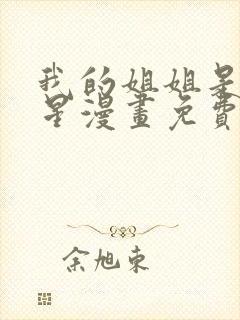 我的姐姐是
星漫畫免費
余旭東